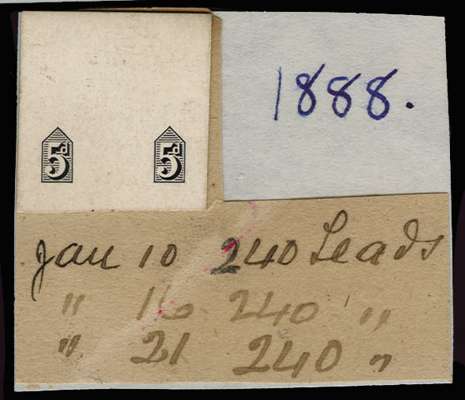 1888.
5d 5d
Jan 10 240 Leads
" 16 240 "
" 21 240 "